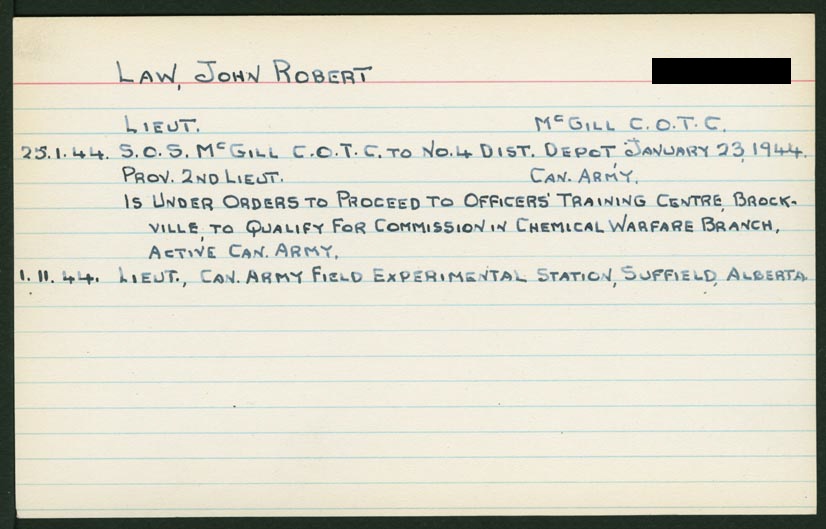 LAW, JOHN ROBERT
LIEUT. McGILL C.O.T.C.
25.1.44. S.O.S. McGILL C.O.T.C. TO No.4 DIST. DEPOT JANUARY 23, 1944.
PROV. 2ND LIEUT. CAN. ARMY.
IS UNDER ORDERS TO PROCEED TO OFFICERS' TRAINING CENTRE, BROCK-
VILLE, TO QUALIFY FOR COMMISSION IN CHEMICAL WARFARE BRANCH,
ACTIVE CAN. ARMY.
1.11.44. LIEUT., CAN. ARMY FIELD EXPERIMENTAL STATION, SUFFIELD, ALBERTA.